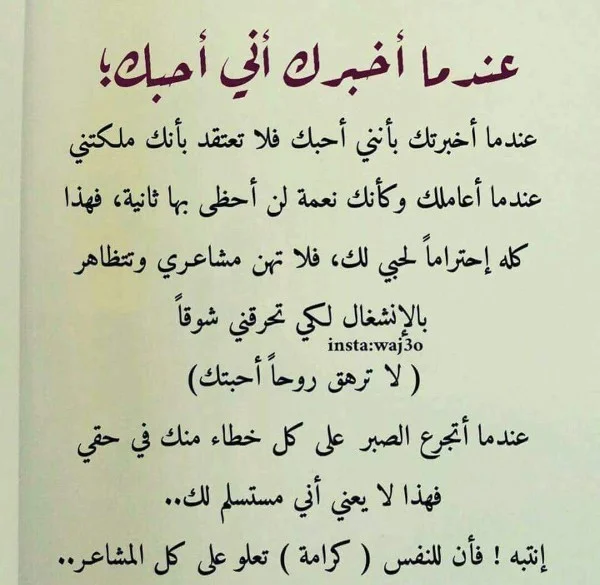 عندما أخبرك أني أحبك؛
عندما أخبرتك بأنني أحبك فلا تعتقد بأنك ملكتني
عندما أعاملك وكأنك نعمة لن أحظى بها ثانية، فهذا
كله إحتراماً لحبي لك، فلا تهن مشاعري وتتظاهر
بالإنشغال لكي تحرقني شوقاً
insta:waj3o
( لا ترهق روحاً أحبتك)
عندما أتجرع الصبر على كل خطاء منك في حقي
فهذا لا يعني أني مستسلم لك..
إنتبه ! فأن للنفس ( كرامة ) تعلو على كل المشاعر..